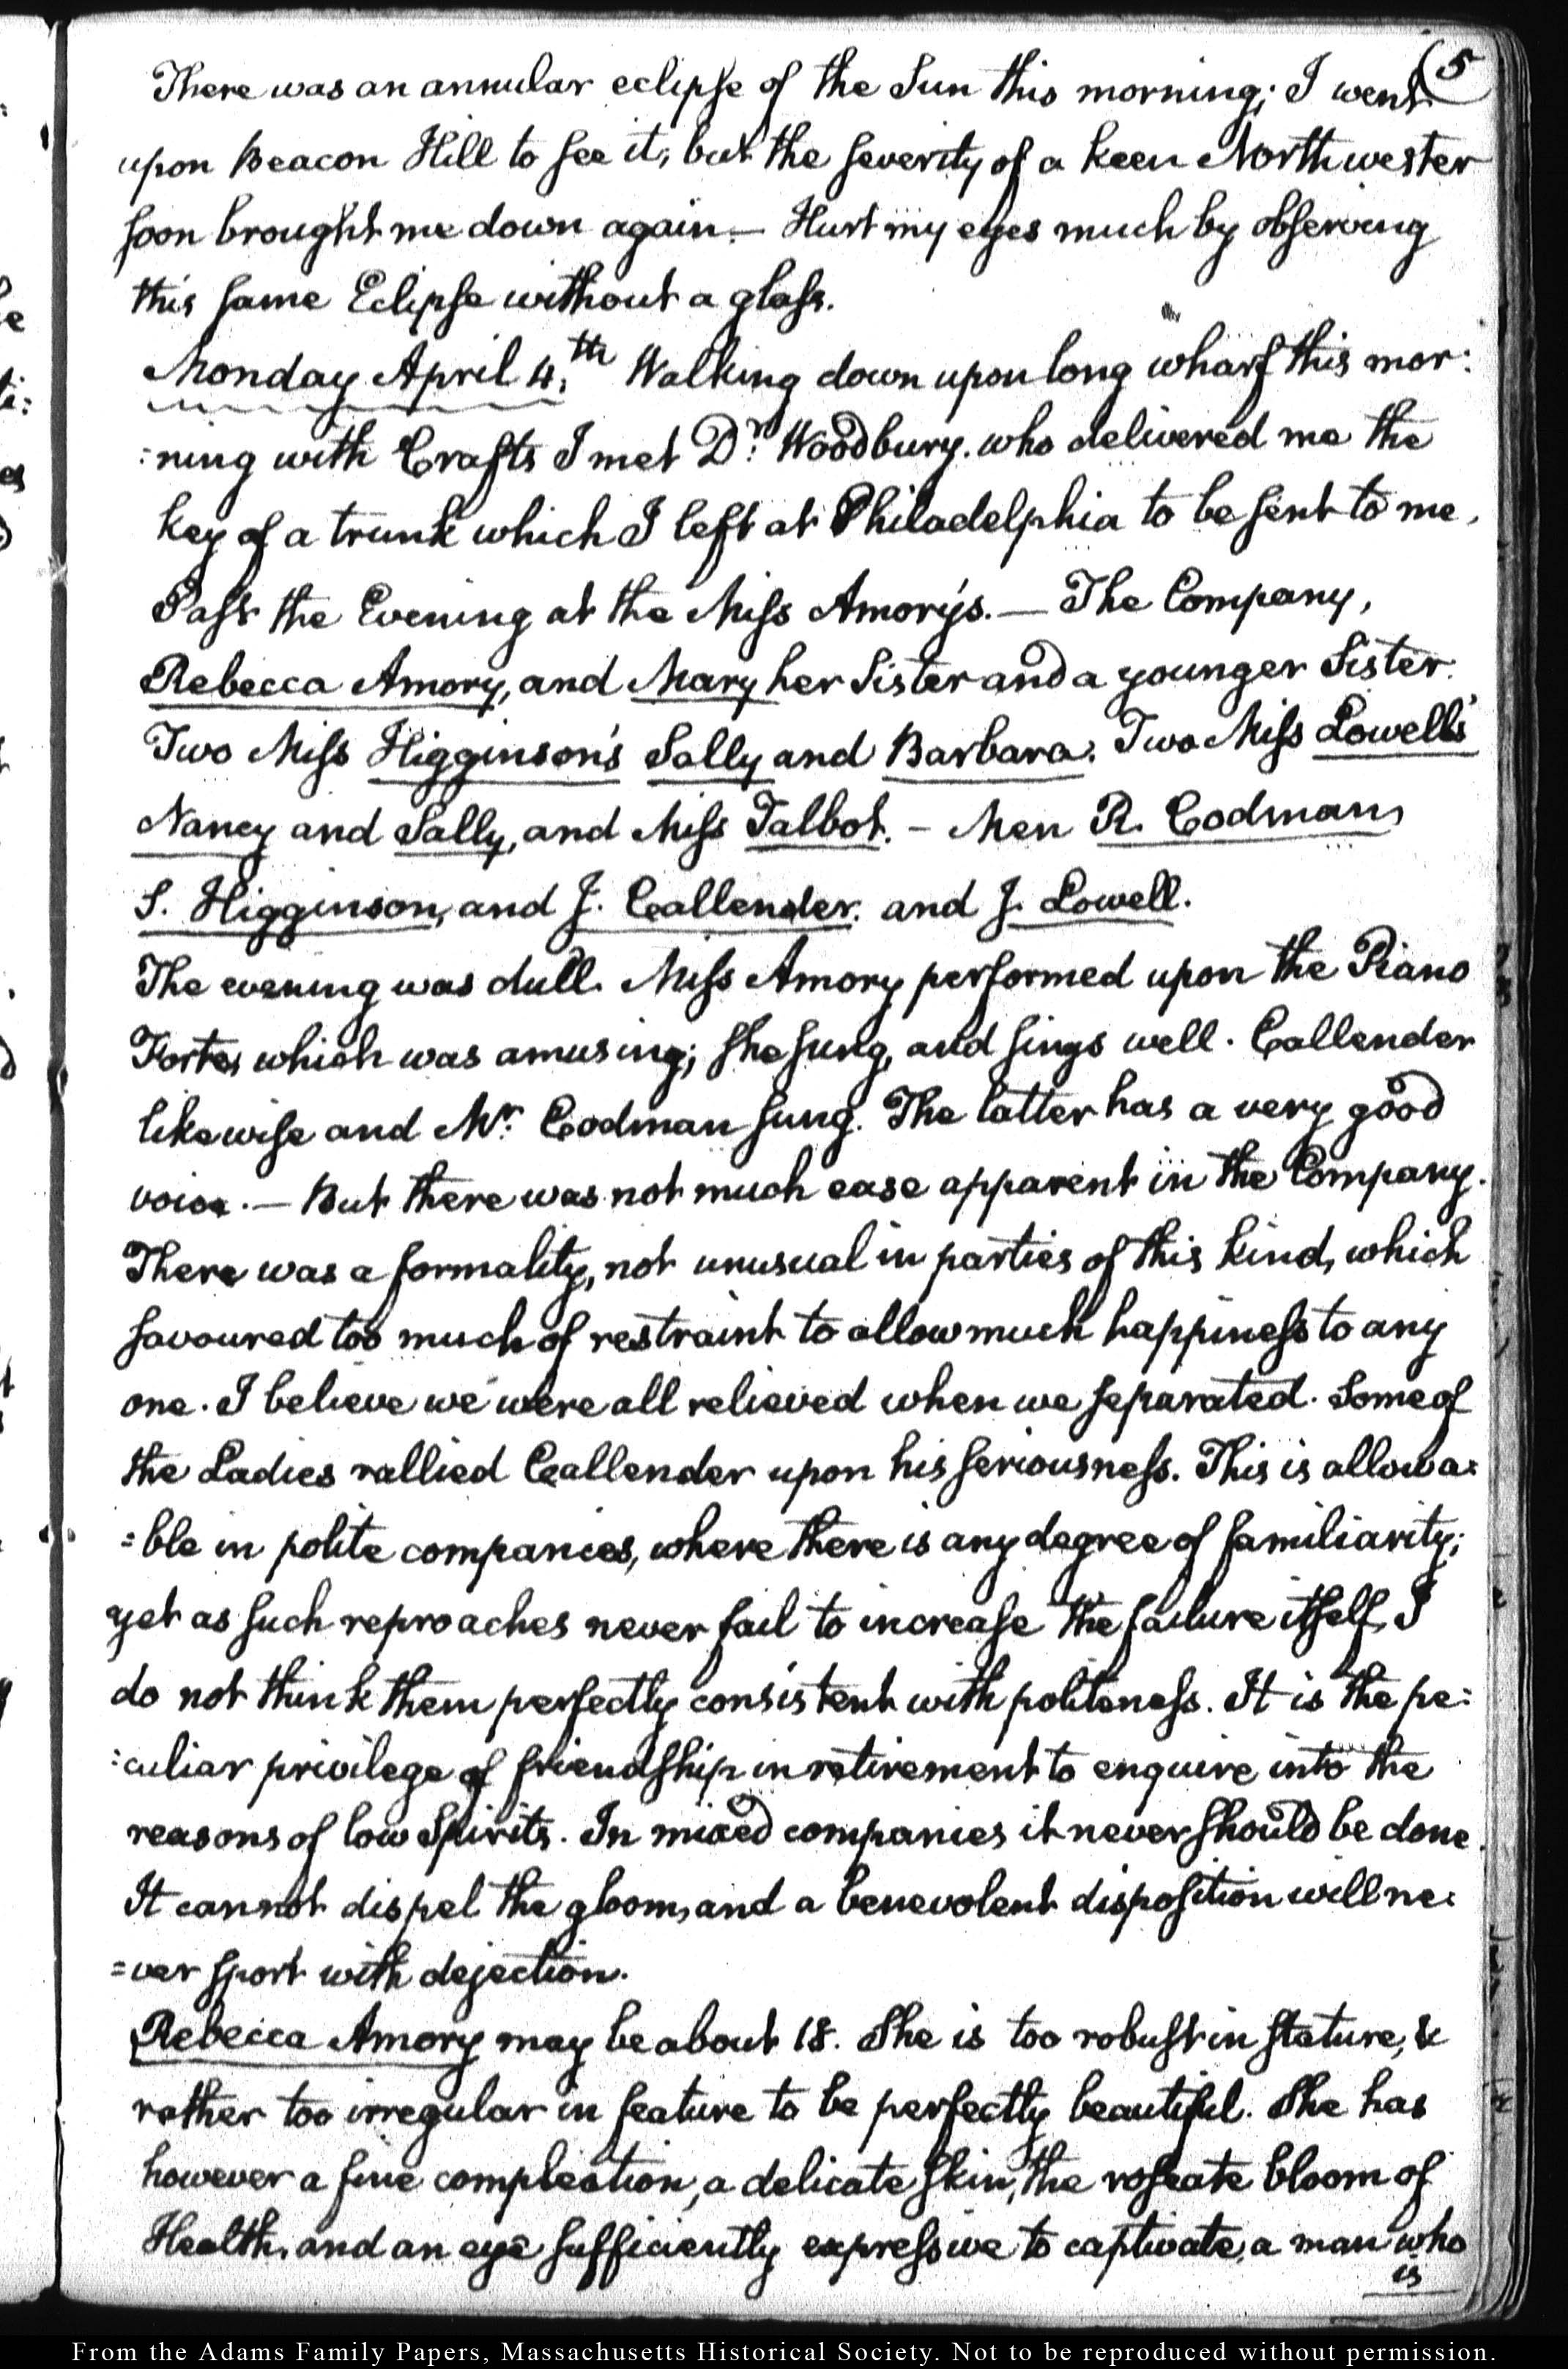 (5
There was an annular eclipse of the Sun this morning; I went
upon Beacon Hill to see it, but the severity of a keen Northwester
soon brought me down again.— Hurt my eyes much by observing
this same Eclipse without a glass.
Monday April 4th. Walking down upon long wharf this mor:
:ning with Crafts I met Dr. Woodbury. who delivered me the
key of a trunk which I left at Philadelphia to be sent to me.
Past the Evening at the Miss Amory's.— The Company,
Rebecca Amory, and Mary her Sister and a younger Sister.
Two Miss Higginson's Sally and Barbara. Two Miss Lowells'
Nancy and Sally, and Miss Talbot. – Men R. Codman,
S. Higginson, and J. Callender. and J. Lowell.
The evening was dull. Miss Amory performed upon the Piano
Forte, which was amusing; she sung, and sings well. Callender
likewise and Mr. Codman sung. The latter has a very good
voice.— But there was not much ease apparent in the Company.
There was a formality, not unusual in parties of this kind, which
savoured too much of restraint to allow much happiness to any
one. I believe we were all relieved when we separated. Some of
the Ladies rallied Callender upon his seriousness. This is allowa:
=ble in polite companies, where there is any degree of familiarity;
yet as such reproaches never fail to increase the failure itself, I
do not think them perfectly consistent with politeness. It is the pe:
:culiar privilege of friendship in retirement to enquire into the
reasons of low Spirits. In mixed companies it never should be done.
It cannot dispel the gloom, and a benevolent disposition will ne:
=ver sport with dejection.
Rebecca Amory may be about 18. She is too robust in stature, &
rather too irregular in feature to be perfectly beautiful. She has
however a fine complection, a delicate skin, the roseate bloom of
Health, and an eye sufficiently expressive to captivate, a man who
is
From the Adams Family Papers, Massachusetts Historical Society. Not to be reproduced without permission.